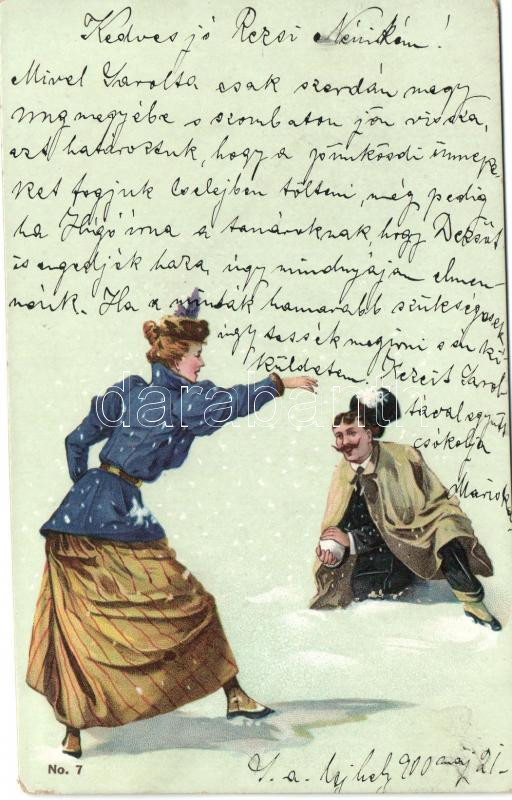 Kedves jó Rezsi Nénikém!
Mivel Sarolta csak szerdán megy
Ungmegyébe s szombaton jön vissza,
azt határoztuk, hogy a pünkösdi ünnepe-
ket fogjuk Cselejben tölteni, még pedig
ha Hugó írna a tanároknak, hogy Dezsőt
is engedjék haza, úgy mindnyájan elmen-
nénk. Ha a minták hamarabb szükségesek
úgy tessék megírni s én ki
küldetem. Kezeit Sarol
tával együtt
csókolja
Mariska
darabanth
No. 7
S. a. Ujhely 900 máj 21.